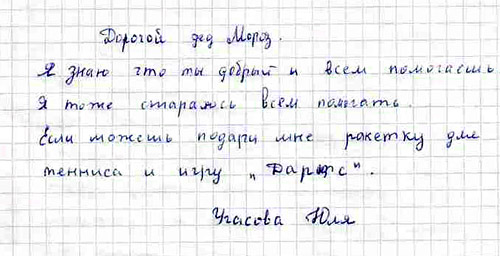 Дорогой дед Мороз.
Я знаю что ты добрый и всем помогаешь
Я тоже стараюсь всем помогать.
Если можешь подари мне ракетку для
тенниса и игру „Дартс".
Угасова Юля